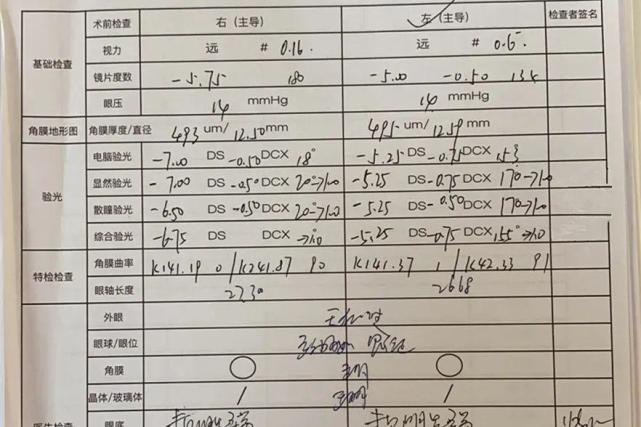 术前检查 右（主导） 左（主导） 检查者签名
基础检查
视力 远 # 0.16. 远 # 0.6.
镜片度数 -5.75 180 -5.00 -0.50 134
眼压 14 mmHg 14 mmHg
角膜地形图 角膜厚度/直径 493 um/ 12.50 mm 495 um/ 12.59 mm
验光
电脑验光 -7.00 DS -0.50 DCX 18° -5.25 DS -0.75 DCX 153
显然验光 -7.00 DS -0.50 DCX 20°→1.0 -5.25 DS -0.75 DCX 170→1.0
散瞳验光 -6.50 DS -0.50 DCX 20°→1.0 -5.25 DS -0.50 DCX 170→1.0
综合验光 -6.75 DS DCX →1.0 -5.25 DS -0.75 DCX 155°→1.0
特检检查
角膜曲率 K141.19 0 /K241.87 90 K141.37 1 /K42.33 91
眼轴长度 27.30 26.68
外眼
眼球/眼位
角膜
晶体/玻璃体 / /
医生检查 眼底